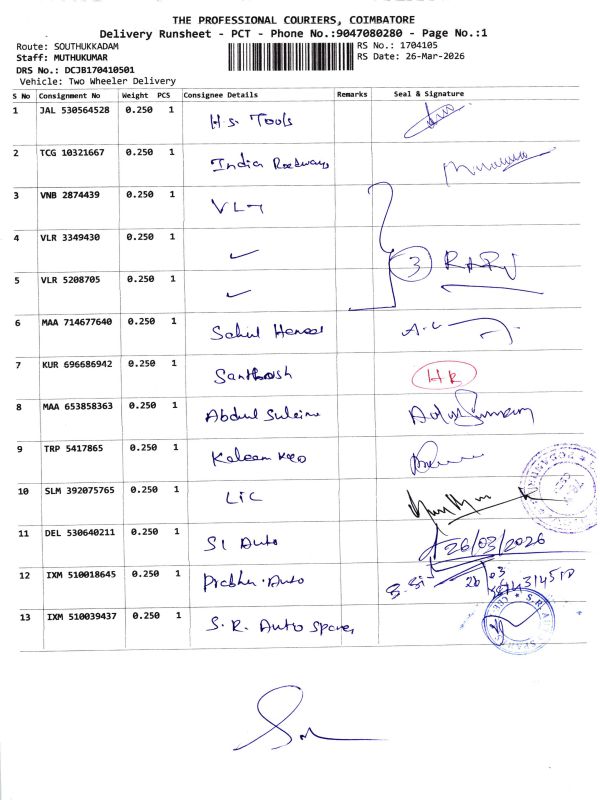 THE PROFESSIONAL COURIERS, COIMBATORE
Delivery Runsheet - PCT - Phone No.:9047080280 - Page No.:1
Route: SOUTHUKKADAM RS No.: 1704105
Staff: MUTHUKUMAR RS Date: 26-Mar-2026
DRS No.: DCJB170410501
Vehicle: Two Wheeler Delivery
S No Consignment No Weight PCS Consignee Details Remarks Seal & Signature
1 JAL 530564528 0.250 1 H S. Tools
2 TCG 10321667 0.250 1 India Roadways
3 VNB 2874439 0.250 1 VLT
4 VLR 3349430 0.250 1
5 VLR 5208705 0.250 1 3
6 MAA 714677640 0.250 1 Sahul
7 KUR 696686942 0.250 1 Santhosh HR
8 MAA 653858363 0.250 1 Abdul
9 TRP 5417865 0.250 1 Kaleem
10 SLM 392075765 0.250 1 LIC
11 DEL 530640211 0.250 1 SI Auto 26/03/2026
12 IXM 510018645 0.250 1 Prabhu. Auto 26/03
13 IXM 510039437 0.250 1 S. R. Auto Spares